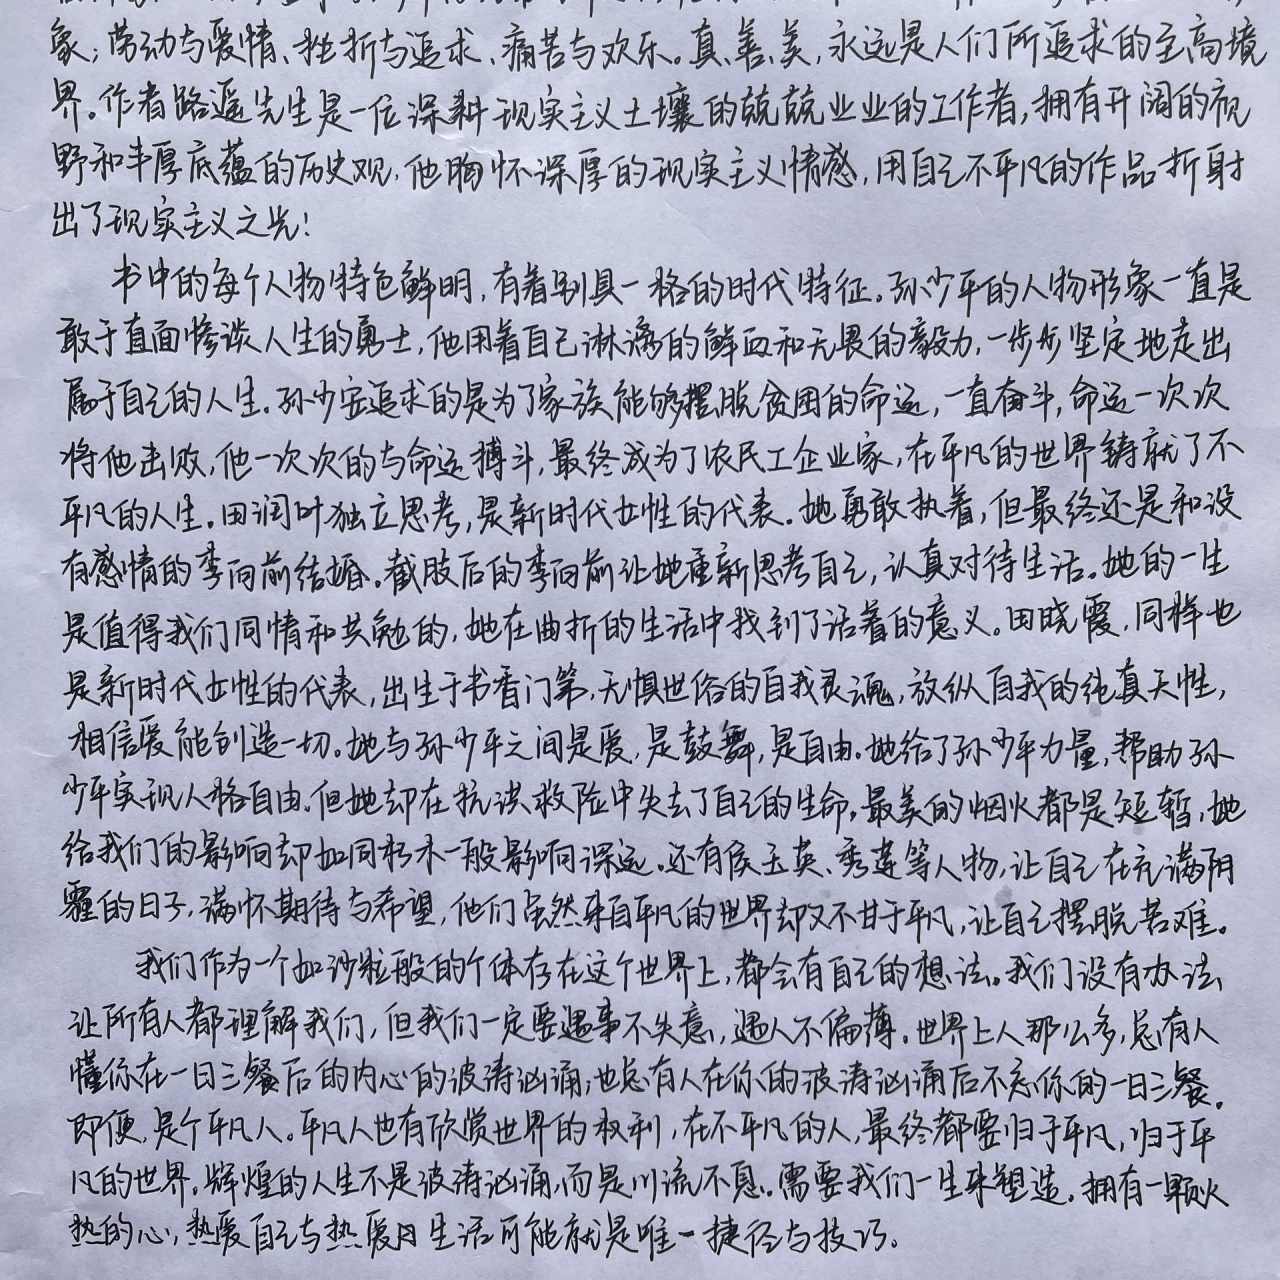 象;劳动与爱情、挫折与追求、痛苦与欢乐。真、善、美,永远是人们所追求的至高境
界。作者路遥先生是一位深耕现实主义土壤的兢兢业业的工作者,拥有开阔的视
野和丰厚底蕴的历史观,他胸怀深厚的现实主义情感,用自己不平凡的作品折射
出了现实主义之光!
书中的每个人物特色鲜明,有着别具一格的时代特征。孙少平的人物形象一直是
敢于直面惨谈人生的勇士,他用着自己淋漓的鲜血和无畏的毅力,一步步坚定地走出
属于自己的人生。孙少安追求的是为了家族能够摆脱贫困的命运,一直奋斗,命运一次次
将他击败,他一次次的与命运搏斗,最终成为了农民工企业家,在平凡的世界铸就了不
平凡的人生。田润叶独立思考,是新时代女性的代表。她勇敢执着,但最终还是和没
有感情的李向前结婚。截肢后的李向前让她重新思考自己,认真对待生活。她的一生
是值得我们同情和共勉的,她在曲折的生活中找到了活着的意义。田晓霞,同样也
是新时代女性的代表,出生于书香门第,无惧世俗的自我灵魂,放纵自我的纯真天性,
相信爱能创造一切。她与孙少平之间是爱,是鼓舞,是自由。她给了孙少平力量,帮助孙
少平实现人格自由。但她却在抗洪救险中失去了自己的生命,最美的烟火都是短暂,她
给我们的影响却如同朽木一般影响深远。还有侯玉英、秀莲等人物,让自己在充满阴
霾的日子,满怀期待与希望,他们虽然来自平凡的世界却又不甘于平凡,让自己摆脱苦难。
我们作为一个如沙粒般的个体存在这个世界上,都会有自己的想法。我们没有办法
让所有人都理解我们,但我们一定要遇事不失意,遇人不偏薄。世界上人那么多,总有人
懂你在一日三餐后的内心的波涛汹涌,也总有人在你的波涛汹涌后不忘你的一日三餐。
即便,是个平凡人。平凡人也有欣赏世界的权利,在不平凡的人,最终都要归于平凡,归于平
凡的世界。辉煌的人生不是波涛汹涌,而是川流不息。需要我们一生来塑造。拥有一颗火
热的心,热爱自己与热爱生活可能就是唯一捷径与技巧。